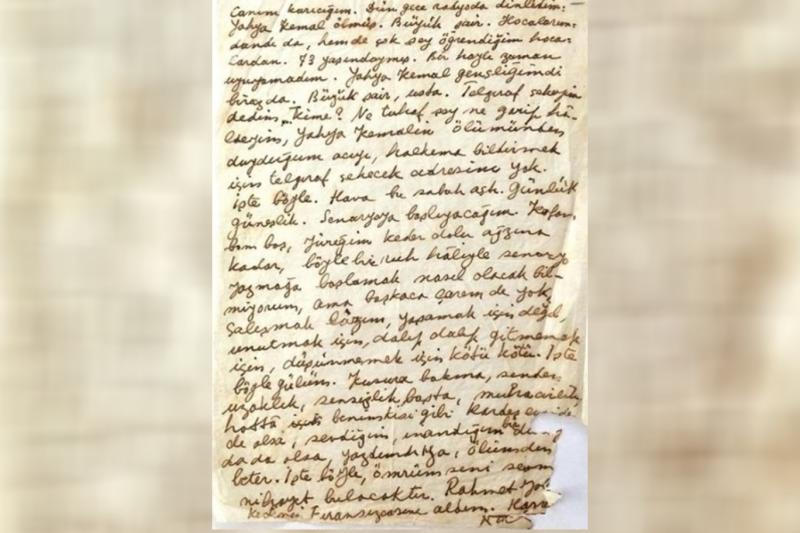 Canım karıcığım. Dün gece radyoda dinledim:
Yahya Kemal ölmüş. Büyük şair. Hocaların-
dandı da, hem de çok şey öğrendiğim hoca-
lardan. 73 yaşındaymış. Bir hayli zaman
uyuyamadım. Yahya Kemal gençliğimdi
biraz da. Büyük şair, usta. Telgraf çekeyim
dedim, kime? Ne tuhaf şey ne garip hâ-
ldeyim, Yahya Kemalin ölümünden
duyduğum acıyı, halkıma bildirmek
için telgraf çekecek adresim yok.
İşte böyle. Hava bu sabah açık. Günlük
güneşlik. Senaryoya başlıyacağım. Kafam
bom boş, yüreğim keder dolu ağzına
kadar, böyle bir ruh hâliyle senaryo
yazmağa başlamak nasıl olacak bil-
miyorum, ama başkaca çarem de yok,
çalışmak lâzım, yaşamak için değil,
unutmak için, dalıp dalıp gitmemek
için, düşünmemek için kötü kötü. İşte
böyle gülüm. Kusura bakma, senden
uzaklık, sensizlik başta, muhacirlik
hattâ benimkisi gibi kardeş evinde
de olsa, sevdiğim, inandığım bir
da da olsa, ölümden
beter. İşte böyle, ömrüm seni
nihayet bulacaktır. Rahmet
Fıransızcasını aldım.